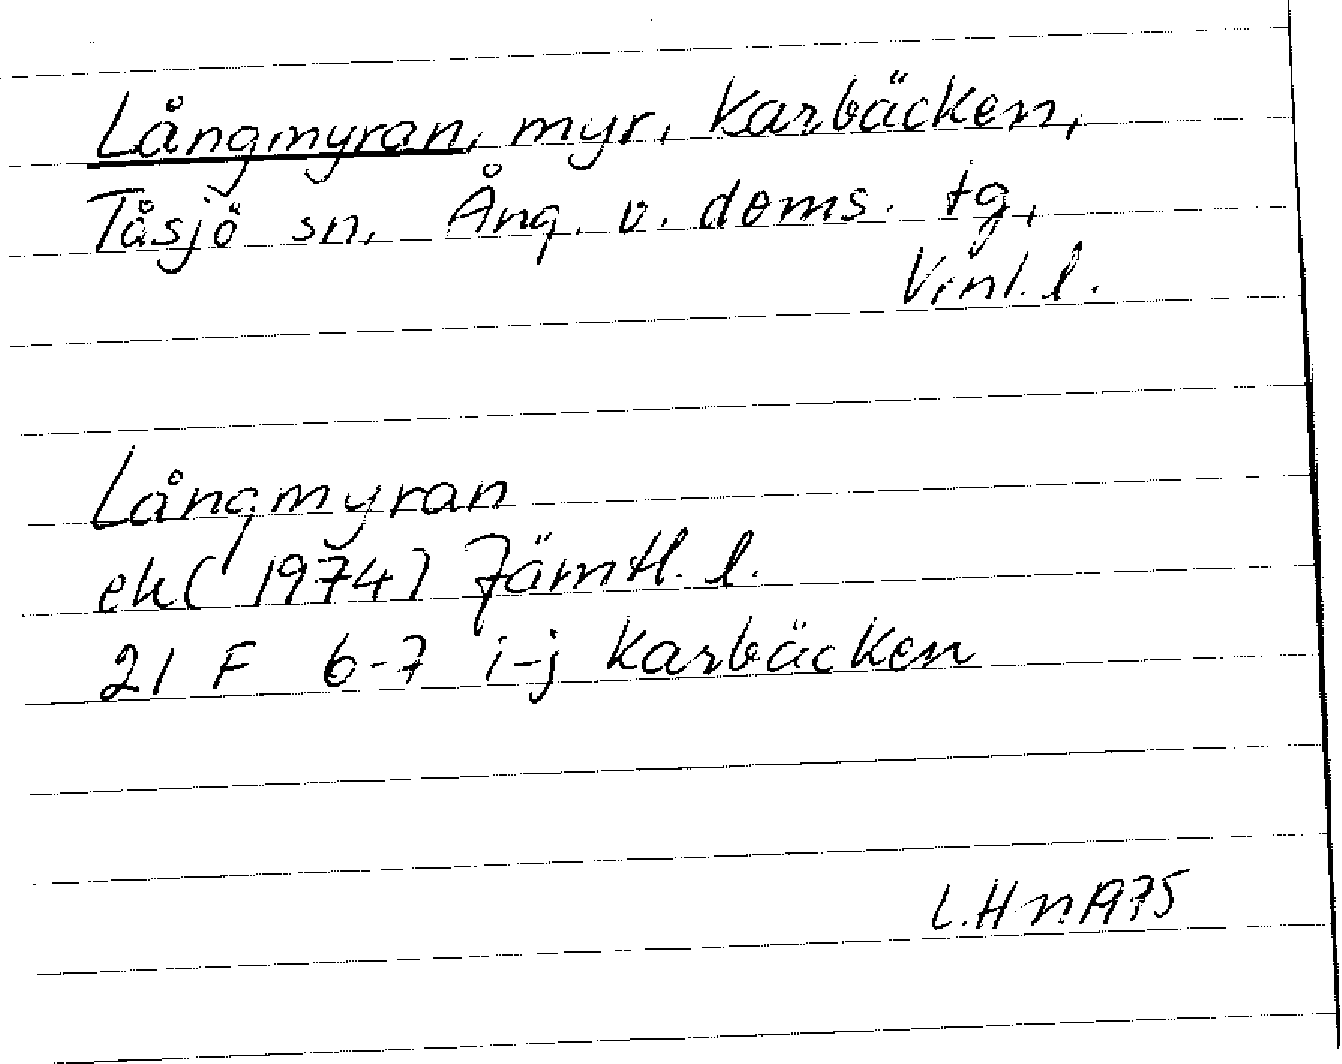 Långmyran, myr, Karbäcken,
Tåsjö sn, Ång. v. doms. tg,
Vnl. l.
Långmyran
ek (1974) Jämtl. l.
21 F 6-7 i-j Karbäcken
L.Hn 1975